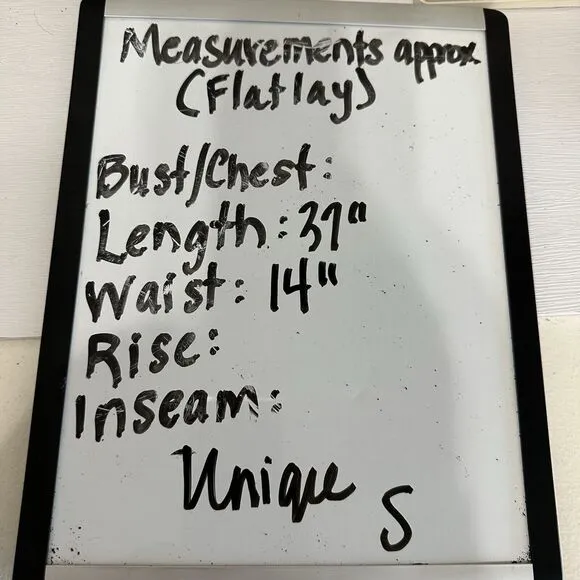 Measurements approx.
(Flatlay)
Bust/Chest:
Length: 37"
Waist: 14"
Rise:
Inseam:
Unique
S